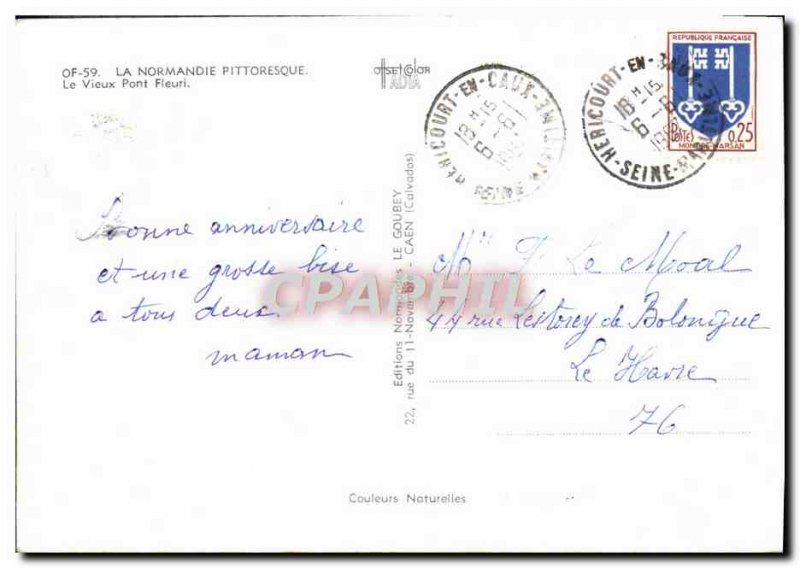 OF-59. LA NORMANDIE PITTORESQUE.
Le Vieux Pont Fleuri.
offset COLOR
IADIA
HERICOURT-EN-CAUX
SEINE-MARITIME
18H15
6-6
HERICOURT-EN-CAUX
SEINE-MARITIME
18H15
6-6
REPUBLIQUE FRANÇAISE
POSTES 0,25
MONT-DE-MARSAN
Bonne anniversaire
et une grosse bise
a tous deux
maman
Editions Normandes LE GOUBEY
22, rue du 11-Novembre - CAEN (Calvados)
CPAPHIL
Mr Le Moal
44 rue Lestorey de Bolongue
Le Havre
76
Couleurs Naturelles